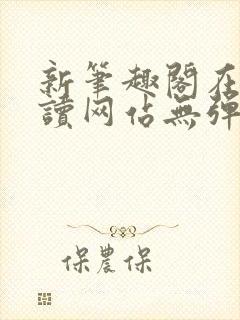 新筆趣閣在
讀网佔無彈
保農保